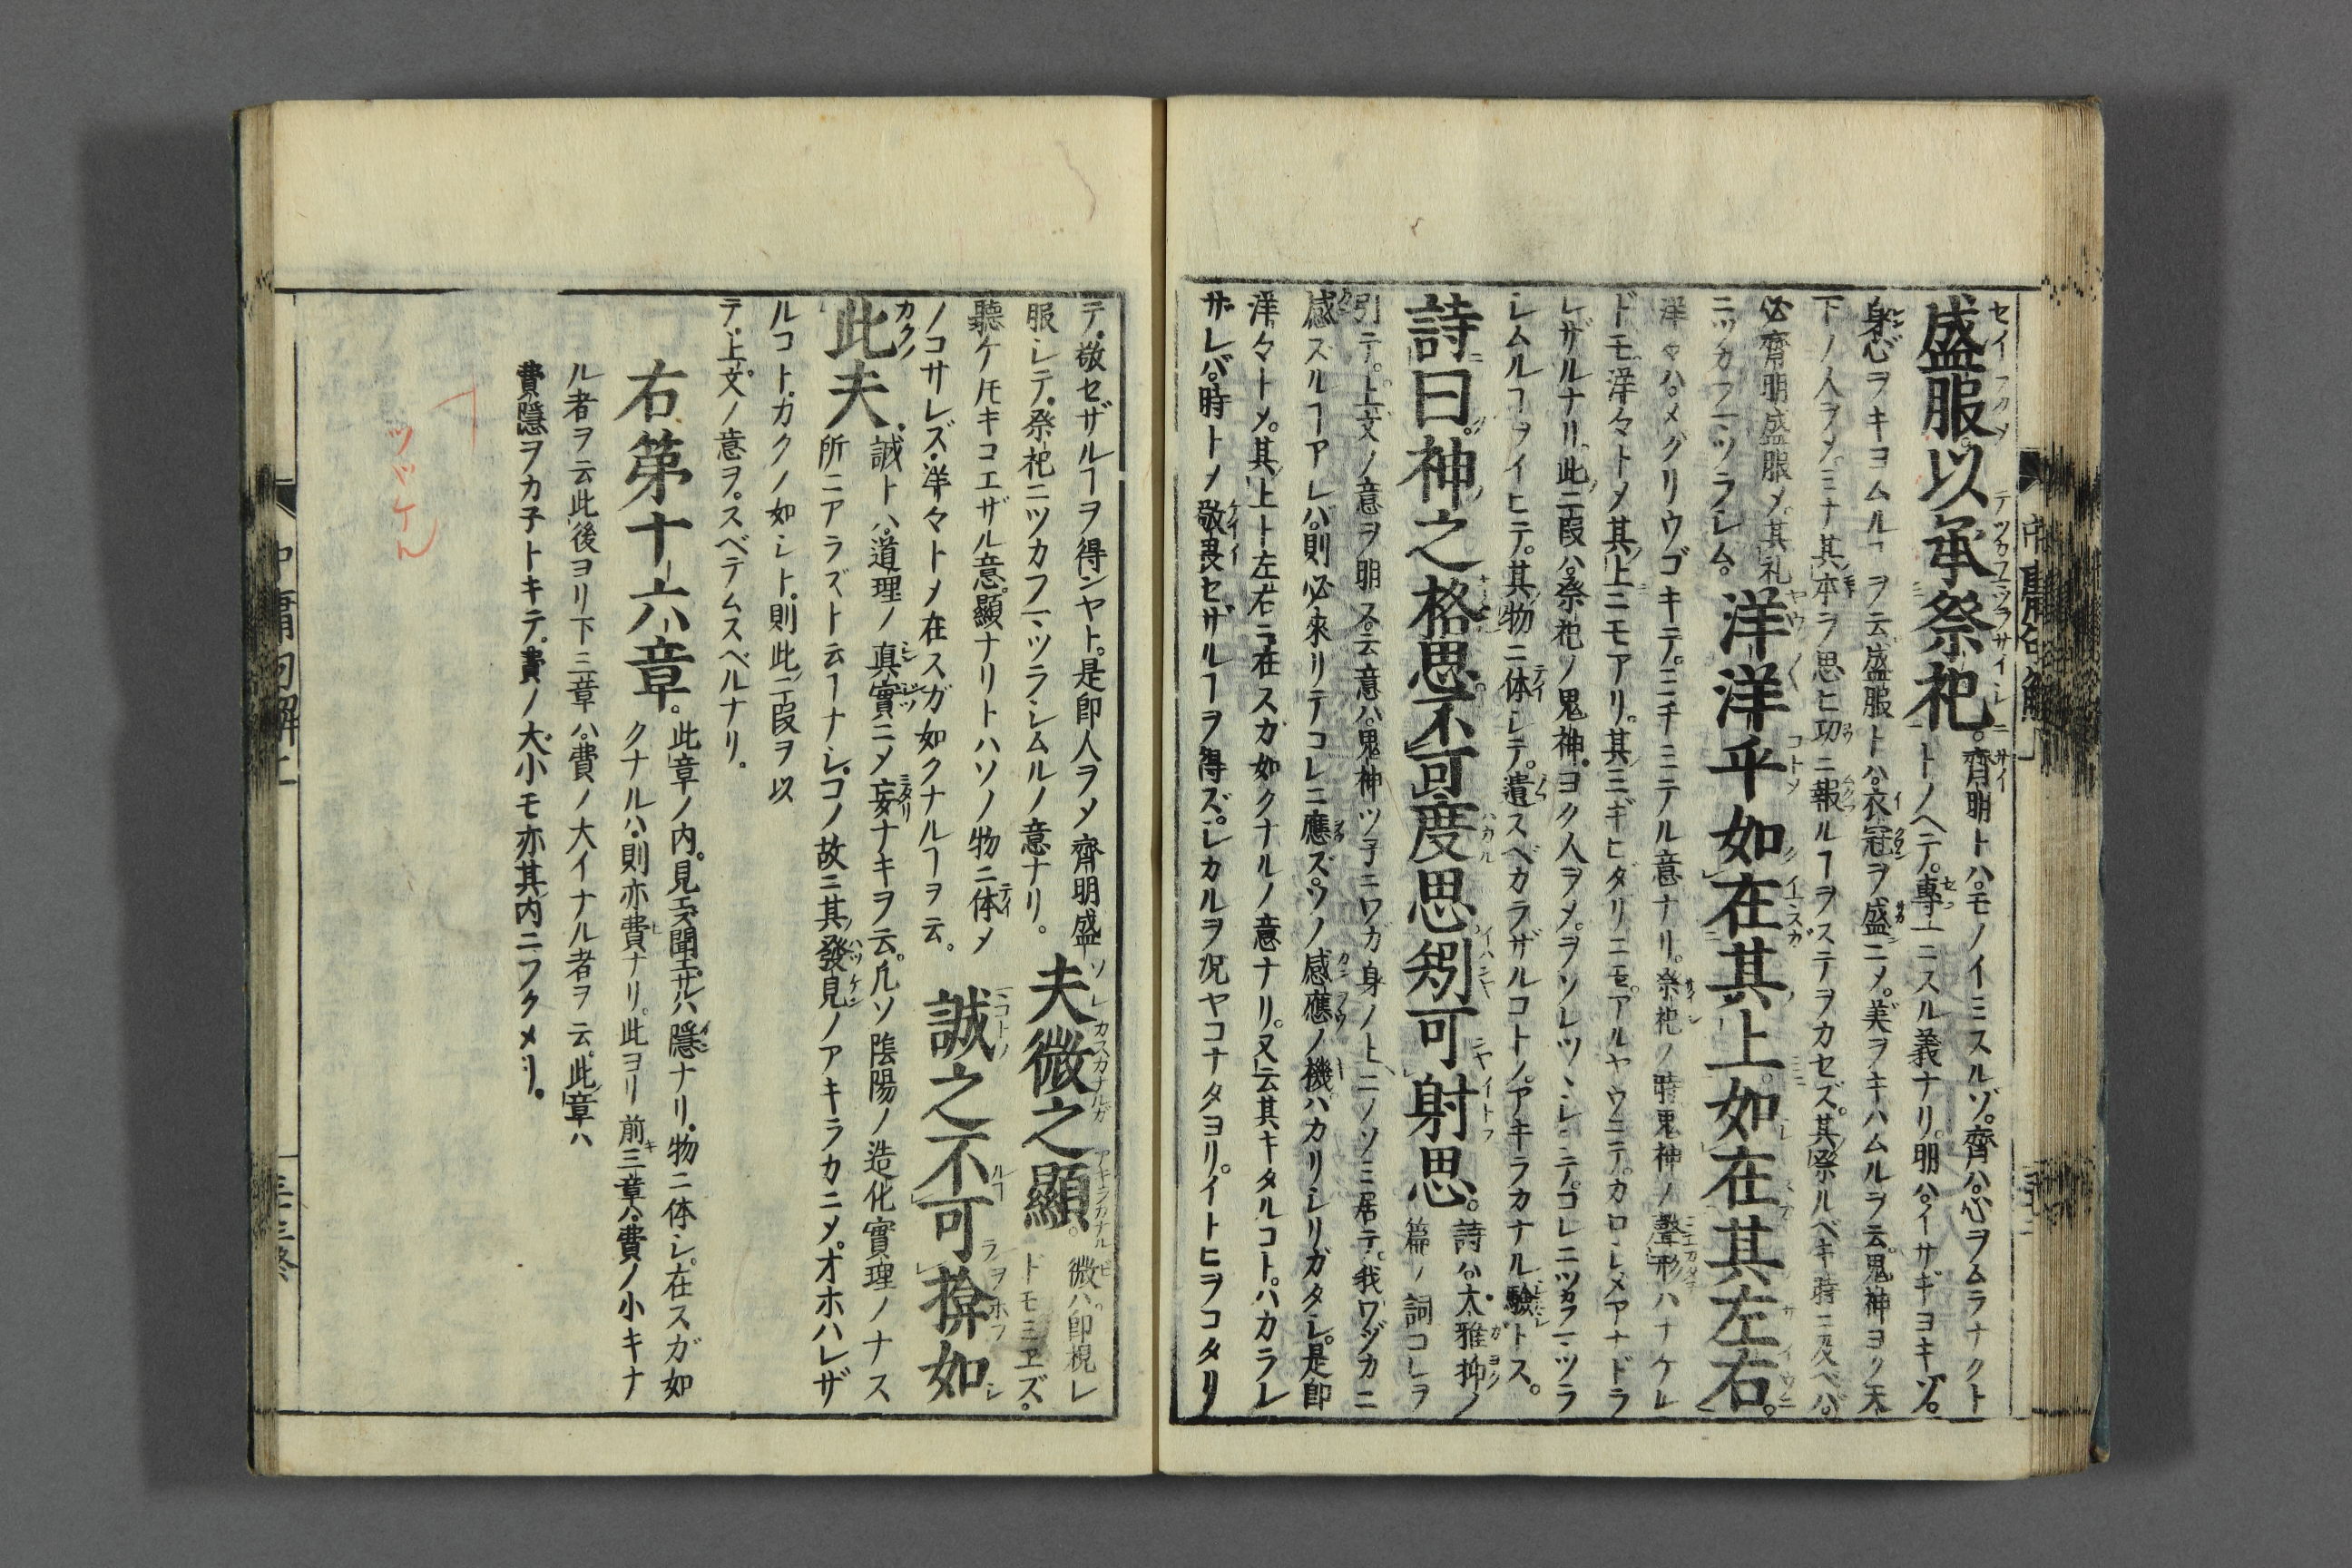 盛服。以承祭祀。齊明トハ。モノイミスルゾ。齊ハ。心ヲムラナクト
トノヘテ。專一ニスル義ナリ。明ハ。イサギヨキゾ。
身心ヲキヨムルヿヲ云。盛服トハ。衣冠ヲ盛ニメ。美ヲキハムルヲ云。鬼神ヨク天
下ノ人ヲメ。ミナ其本ヲ思ヒ功ニ報ルヿヲステヲカセズ。其祭ルベキ時ニ及ベバ。
必齊明盛服メ。其礼
ニツカフマツラレム。洋洋乎如在其上。如在其左右。
洋々ハ。メグリウゴキテ。ミチミテル意ナリ。祭祀ノ時鬼神ノ聲形ハナケレ
ドモ。洋々トメ其上ニモアリ。其ミギヒダリニモ。アルヤウニテ。カロシメアナドラ
レザルナリ。此二段ハ。祭祀ノ鬼神。ヨク人ヲメ。ヲソレツヽシミテ。コレニツカフマツラ
シムルヿヲイヒテ。其物ニ体シテ。遺スベカラザルコトノ。アキラカナル驗トス。
詩曰。神之格思。不可度思。矧可射思。詩ハ。太雅抑ノ
篇ノ詞コレヲ
引テ。上文ノ意ヲ明ス。云意ハ。鬼神ツ子ニワガ身ノ上ニノソミ居テ。我ワヅカニ
感ズルヿアレバ。則必來リテコレニ應ズ。ソノ感應ノ機ハカリシリガタシ。是即
洋々トメ。其上ト左右ニ在スガ如クナルノ意ナリ。又云其キタルコト。ハカラレ
ザレバ。時トメ敬畏セザルヿヲ得ズ。シカルヲ況ヤコナタヨリ。イトヒヲコタリ
テ。敬セザルヿヲ得ンヤト。是即人ヲメ齊明盛
服シテ。祭祀ニツカフマツラシムルノ意ナリ。夫微之顯。微ハ即視レ
ドモミエズ。
聽ケ𪜈キコエザル意。顯ナリトハソノ物ニ体メ
ノコサレズ。洋々トメ在スガ如クナルヿヲ云。誠之不可揜如
此夫。誠トハ。道理ノ真實ニメ妄ナキヲ云。凡ソ陰陽ノ造化實理ノナス
所ニアラズト云ヿナシ。コノ故ニ其發見ノアキラカニメ。オホハレザ
ルコト。カクノ如シト。則此二段ヲ以
テ。上文ノ意ヲ。スベテムスベルナリ。
右第十六章。此章ノ内。見エズ聞エザルハ隱ナリ。物ニ体シ。在スガ如
クナルハ。則亦費ナリ。此ヨリ前三章ハ。費ノ小キナ
ル者ヲ云。此後ヨリ下三章ハ。費ノ大イナル者ヲ云。此章ハ
費隱ヲカ子トキテ。費ノ大小モ亦其内ニフクメリ。
ツヾケん
中庸句解上